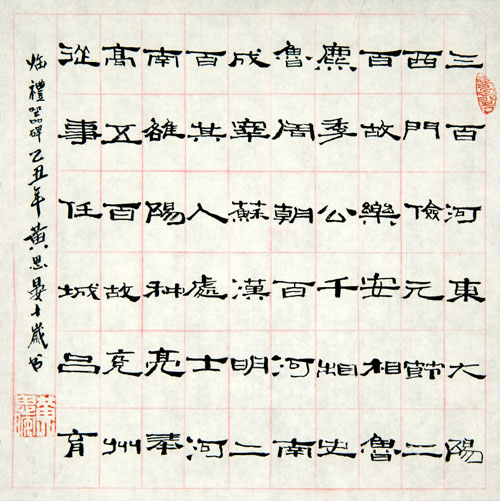 三百河東大陽
西門儉元節二
百故樂安相魯
麃季公千相史
魯周朝百河南
成寋蘇漢明二
百其人處士河
南雒陽种亮奉
高五百故兖州
從事任城呂育
临禮器碑乙丑年黄思晏十歲书